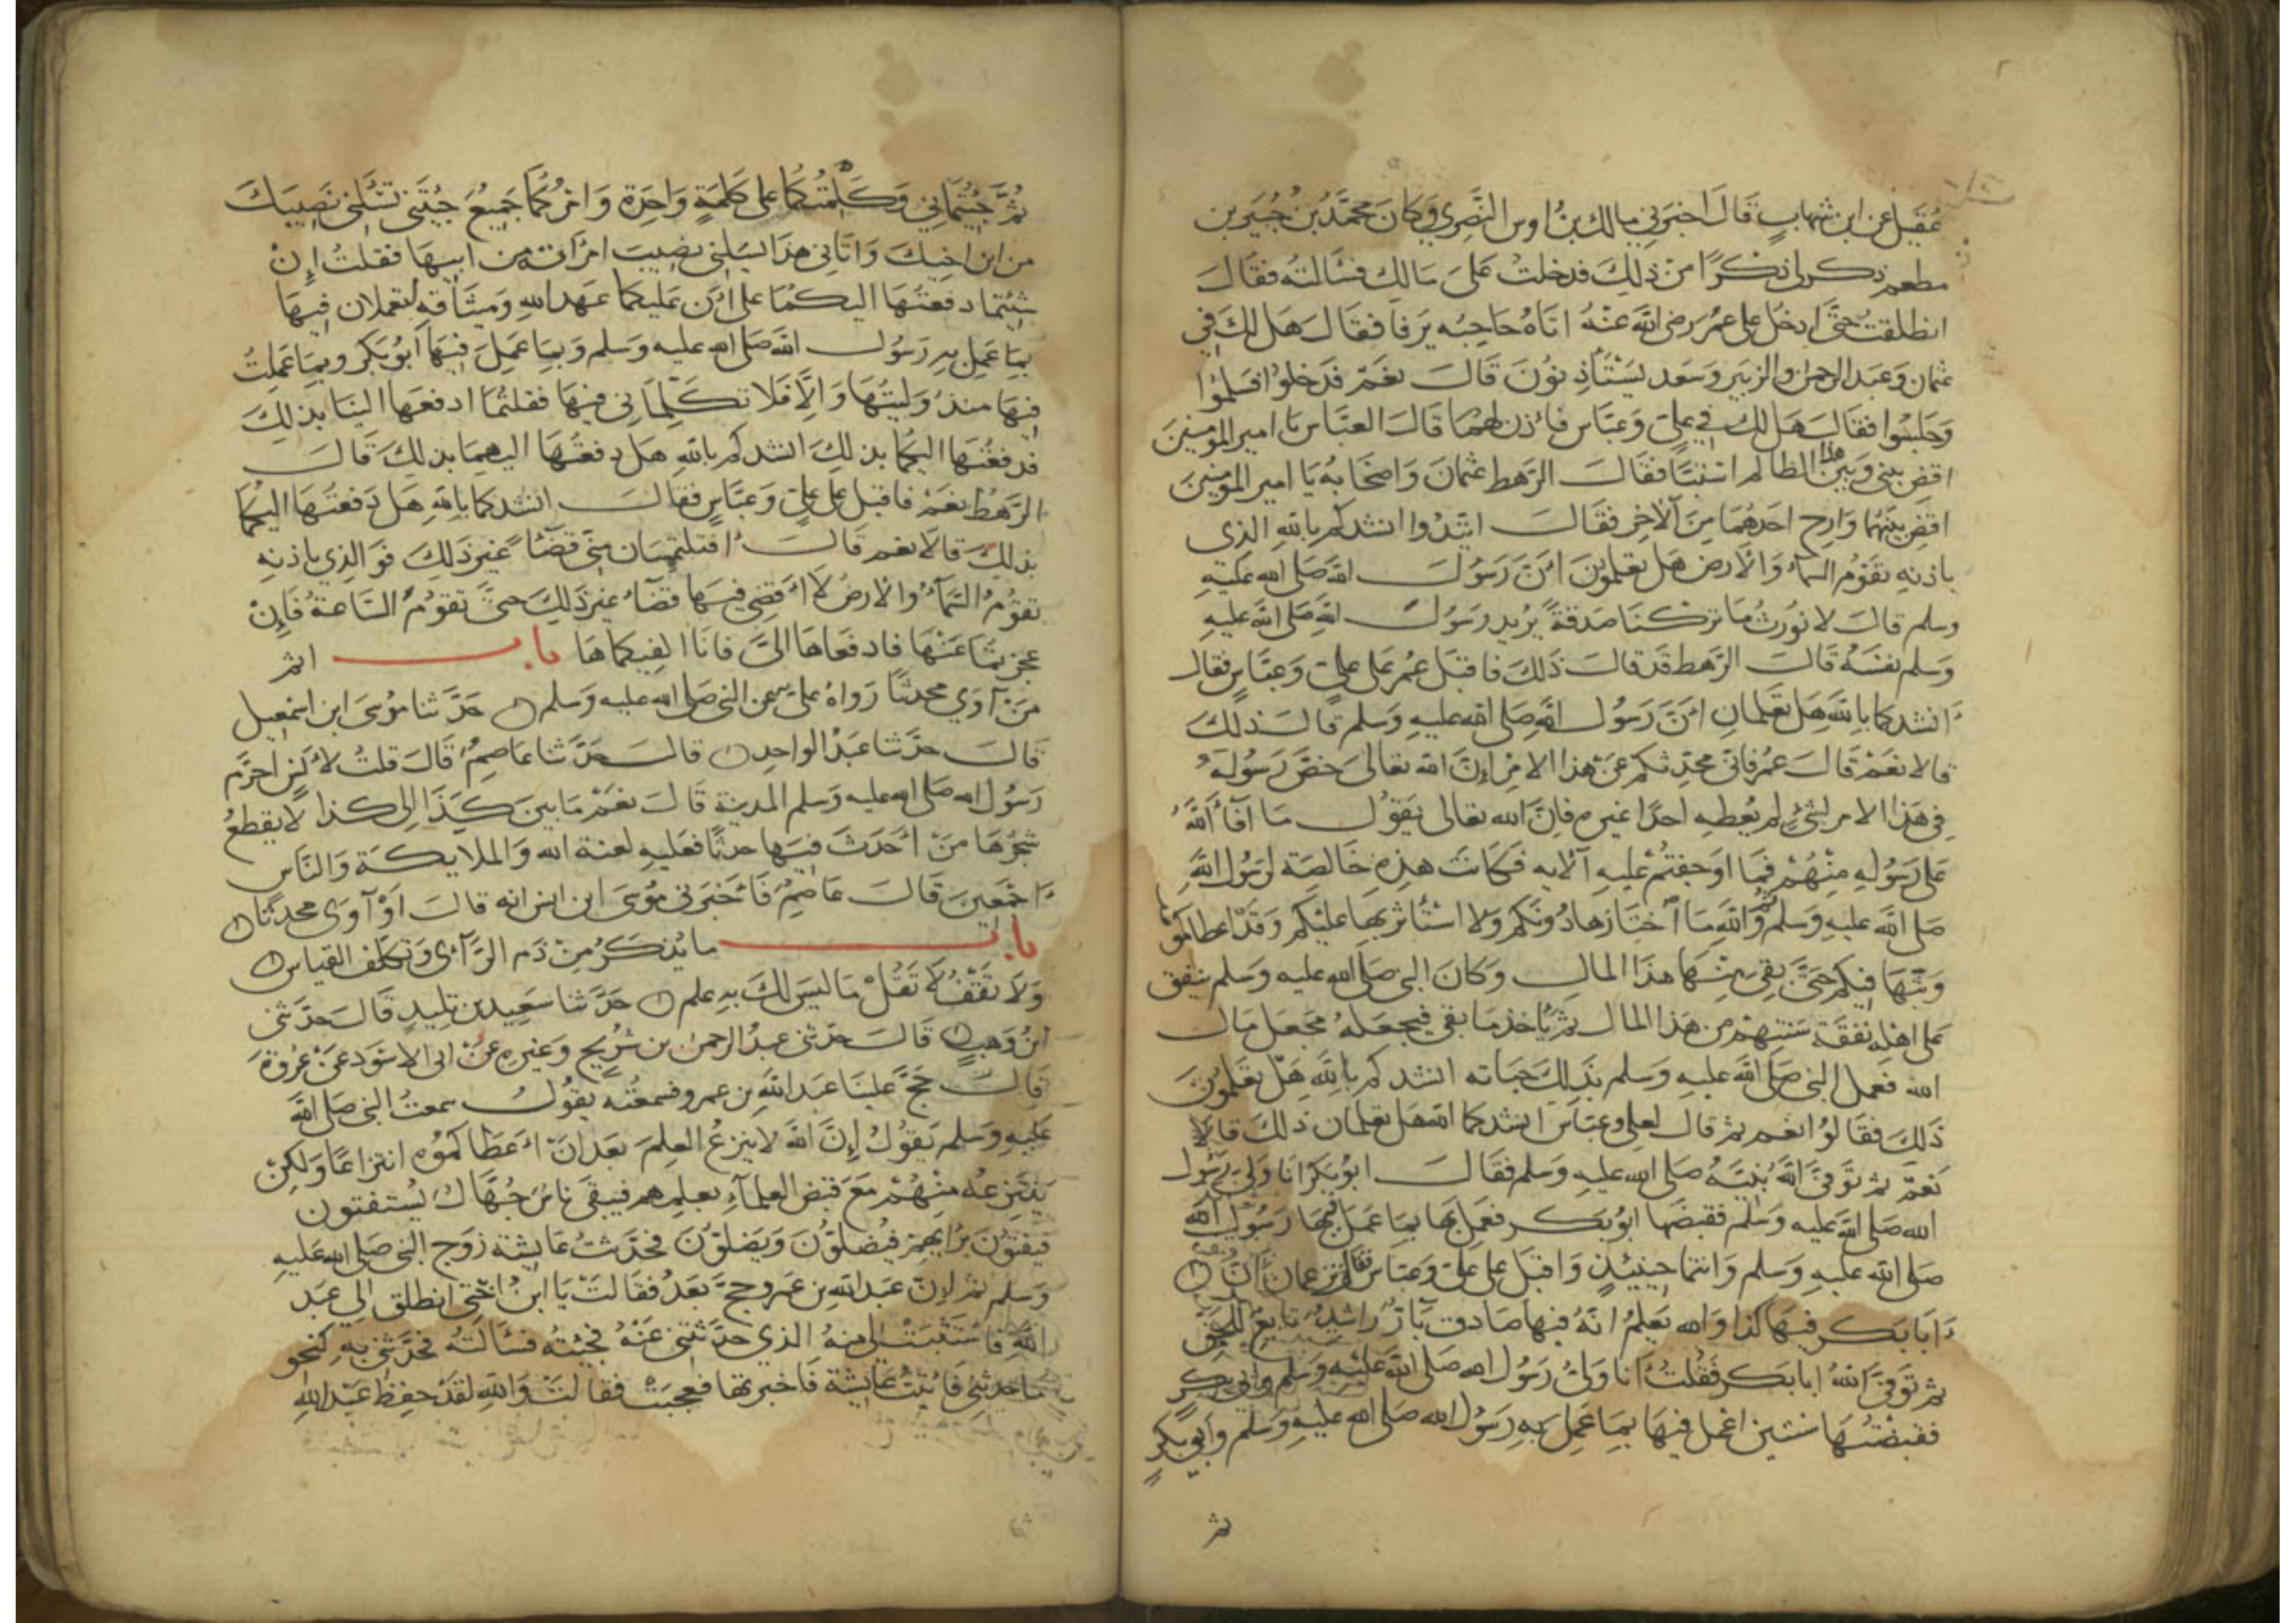 عُقَيل عن ابن شهابٍ قَالَ اخبرَني مالك بنُ اوس النَّصِري وَكانَ محمَّدُ بْن جُبَير بن
مطعم ذكر لي ذِكْرًا مِنْ ذلِكَ فدخلتُ عَلَى مَالك فسَالته فقالَ
انطلقت حَتَّى ادخُل على عمر رَضى الله عَنْهُ اتاهُ حَاجِبُه يَرفا فقالَ هَل لكَ في
عثمان وَعَبد الرحمن والزبَير وَسَعد يسْتَأذِنُونَ قَالَ نعَمْ فدَخلوُا فسَلموُا
وَجَلسُوا فقالَ هَل لك في علي وَعبَّاس فأذن لهمَا قَالَ العبَّاس يَا امير المومنين
اقض بيني وَبين هذا الظالم استبَّا فقالَ الرَّهط عثمانَ وَاصحَابُه يَا امير المومنين
اقضِ بينهُما وَارِح احَدهُمَا مِنَ الآخِر فقالَ اتئدُوا انشدكم بالله الذِي
باذنِه تقوُم السمَاء وَالأرض هَل تعلمُونَ أنَّ رَسُولَ اللهِ صَلى الله عليْهِ
وسلم قالَ لا نُورَثُ مَا ترَكْنَا صَدقةً يُرِيد رَسُول الله صَلى الله عليهِ
وَسَلم نفسَهُ قَالَ الرَّهط قَد قالَ ذَلكَ فاقبَل عُمَر عَلى علي وَعبَّاسٍ فقال
أنشدكما باللهِ هَل تعَلمَانِ أنَّ رَسُول اللهِ صَلى الله عليهِ وَسَلم قالَ ذلكَ
قالا نعَمْ قالَ عمَرُ فاني محدثكم عَنْ هذا الامْر إنَّ الله تعالى خصَّ رَسُوله
فِي هَذا الامر بشيْءٍ لم يُعْطِهِ احَدًا غيره فإنَّ الله تعالى يقولُ مَا أفاء الله
عَلى رَسُولهِ مِنْهُمْ فمَا اوجَفتُمْ عليهِ الآيه فكانَت هذِهِ خَالِصَة لرَسُول الله
صَلى الله عليهِ وَسَلم ثم وَاللهِ مَا احْتَازهَا دُونكم وَلا اسْتأثر بهَا عليْكم وَقدْ اعطاكموُها
وَبثَّهَا فيكم حَتَّى بَقِيَ مِنْهَا هَذا المال وَكانَ النبى صَلى الله عليه وَسَلم ينفق
عَلى اهْلهِ نفقَة سَنتِهِمْ من هَذا المال ثم يَأخذ مَا بقي فيجعَلهُ مَجْعَل مَال
الله فعَمل النبى صَلى الله عليهِ وَسَلم بذَلكَ حيَاته انشدكم باللهِ هَل تعلمُونَ
ذَلكَ فقَالوُا نعَم ثم قال لعلي وعبَّاس انشدكما الله هَل تعلمَان ذلكَ قالا
نَعَمْ ثم توَفّى اللهُ نَبيَّهُ صَلى الله عليهِ وَسَلم فقالَ ابوُ بَكر انا وَلىُّ رَسُول
الله صَلى الله عليه وَسَلم فقبَضَها ابوُ بَكر فعَمِل بهَا بمَا عَملَ فيهَا رَسُول الله
صَلى الله عليهِ وَسلم وَانتمَا حِينَئِذٍ وَاقبَلَ على علي وَعبَّاس فقال تزعمان أنَّ
أَبَا بَكر فيهَا كذا وَالله يَعلمُ انَّهُ فيهَا صَادق بَارٌّ رَاشِدٌ تابعٌ للحَقّ
ثم تَوَفَّى اللهُ ابا بَكر فَقُلتُ أنا وَلىُّ رَسُول الله صَلى الله عَليْهِ وَسَلم وابي بَكر
فقبَضْتُهَا سَنتين اعْمَل فيهَا بمَا عَمِلَ بهِ رَسُول الله صَلى الله عليهِ وَسَلم وابو بَكرٍ
ثم
ثمَّ جِئتُمَاني وَكلِمتُكُمَا على كَلمَةٍ وَاحِدَةٍ وَامْرُكُمَا جَميعٌ جِئتَني تسْئَلنى نَصِيبَكَ
من ابن اخِيكَ وَاتاني هَذا يسَلنى نصِيبَ امْرَاته من ابيهَا فقلتُ إِنْ
شِئتُما دفعتُهَا اليكمَا على أنَّ عَليكما عَهد الله وَميثَاقه لتعملان فيهَا
بمَا عَمِل بهِ رَسُول اللهِ صَلى الله عليه وَسَلم وَبمَا عَمِلَ فيهَا ابوُ بَكر وبمَا عَملتُ
فيهَا منذُ وَليتُهَا وَإلَّا فلا تكَلِّمَاني فيهَا فقلتُما ادفعَها اليْنَا بذلكَ
فدفعتُهَا اليكُما بذلِكَ انشدكم باللهِ هَل دفعتُهَا اليهِمَا بذلكَ قَالَ
الرَّهْطُ نعَمْ فاقبل على عليٍّ وَعبَّاسٍ فقالَ انشدكما باللهِ هَل دَفعتُهَا اليكُمَا
بذلكَ قالا نعم قَالَ أفتلتمِسَان مِنّي قضَآءً غيرَ ذَلكَ فَوَالذِي باذنِهِ
تقوُمُ السَّمَآءُ وَالأرضُ لا أقضِي فيهَا قضَآءً غيرَ ذَلكَ حتَّى تقوُمَ السَّاعَةُ فَإِنْ
عجزتمَا عَنْهَا فادفعَاهَا إليَّ فانَا اكفيكماهَا باب اثم
مَنْ آوَى محدثًا رَوَاهُ علي عن النبي صَلى الله عليه وَسَلم حَدَّثنا موُسَى ابن اسْمعِيل
قَالَ حدَّثنا عَبْدُ الواحِدِ قالَ حَدَّثنا عَاصِمٌ قَالَ قلتُ لأنس أحَرَّم
رَسُول الله صَلى الله عليه وَسَلم المدينة قَالَ نعَمْ مَا بَينَ كَذَا إلى كذا لا يقطعُ
شجَرُهَا مَنْ أحْدَثَ فيهَا حدثًا فعَليهِ لعنَة الله وَالملايكَة وَالنَّاس
أجْمَعينَ قَالَ عَاصِمٌ فَأخْبَرَنى موُسَى ابن انس انه قالَ أوْ آوَى محدثًا
باب مَا يُذكَرُ مِنْ ذَم الرَّأى وَتكلف القياس
وَلاَ تقْفُ لاَ تَقُلْ مَا ليسَ لكَ بهِ علم حَدَّثنا سَعِيد بن تليدٍ قَالَ حَدَّثنى
ابْنُ وَهبٍ قَالَ حَدثنى عبدُ الرحمن بن شُرَيح وَغيره عَنْ ابى الاسْوَد عَنْ عُرْوَة
قَالَ حَجَّ علينَا عَبد اللهِ بن عمرو فسَمعتُه يقوُلُ سمعتُ النبى صَلى الله
عَليهِ وَسَلم يَقوُلُ إنَّ اللهَ لا ينزعُ العِلمَ بَعدَ انْ أعْطَاكموُه انتزاعًا وَلكِنْ
يَنتَزِعُه مِنْهُمْ مَعَ قَبض العلمَآءِ بعلمِهم فيبقى نَاسٌ جُهَّالٌ يُسْتَفتون
فيُفتوُنَ برَايهم فيُضلوُّن وَيَضلوُّنَ فحدَّثتُ عَايشة زَوج النبى صَلى الله عَليه
وَسلم ثم إنَّ عَبد اللهِ بن عَمرو حَجَّ بَعدُ فقالتْ يَا ابنَ اخْتي انطلق إلى عَبد
اللهِ فَاسْتثبِتْ لي مِنهُ الذي حَدَّثتني عَنْهُ فجئتهُ فسَالتهُ فحدَّثنى بهِ كنحو
مَا حَدثنِي فأتيْتُ عَايشة فَاخبرتهَا فعجبَتْ فقالتْ وَاللهِ لقَدْ حفِظ عَبد اللهِ